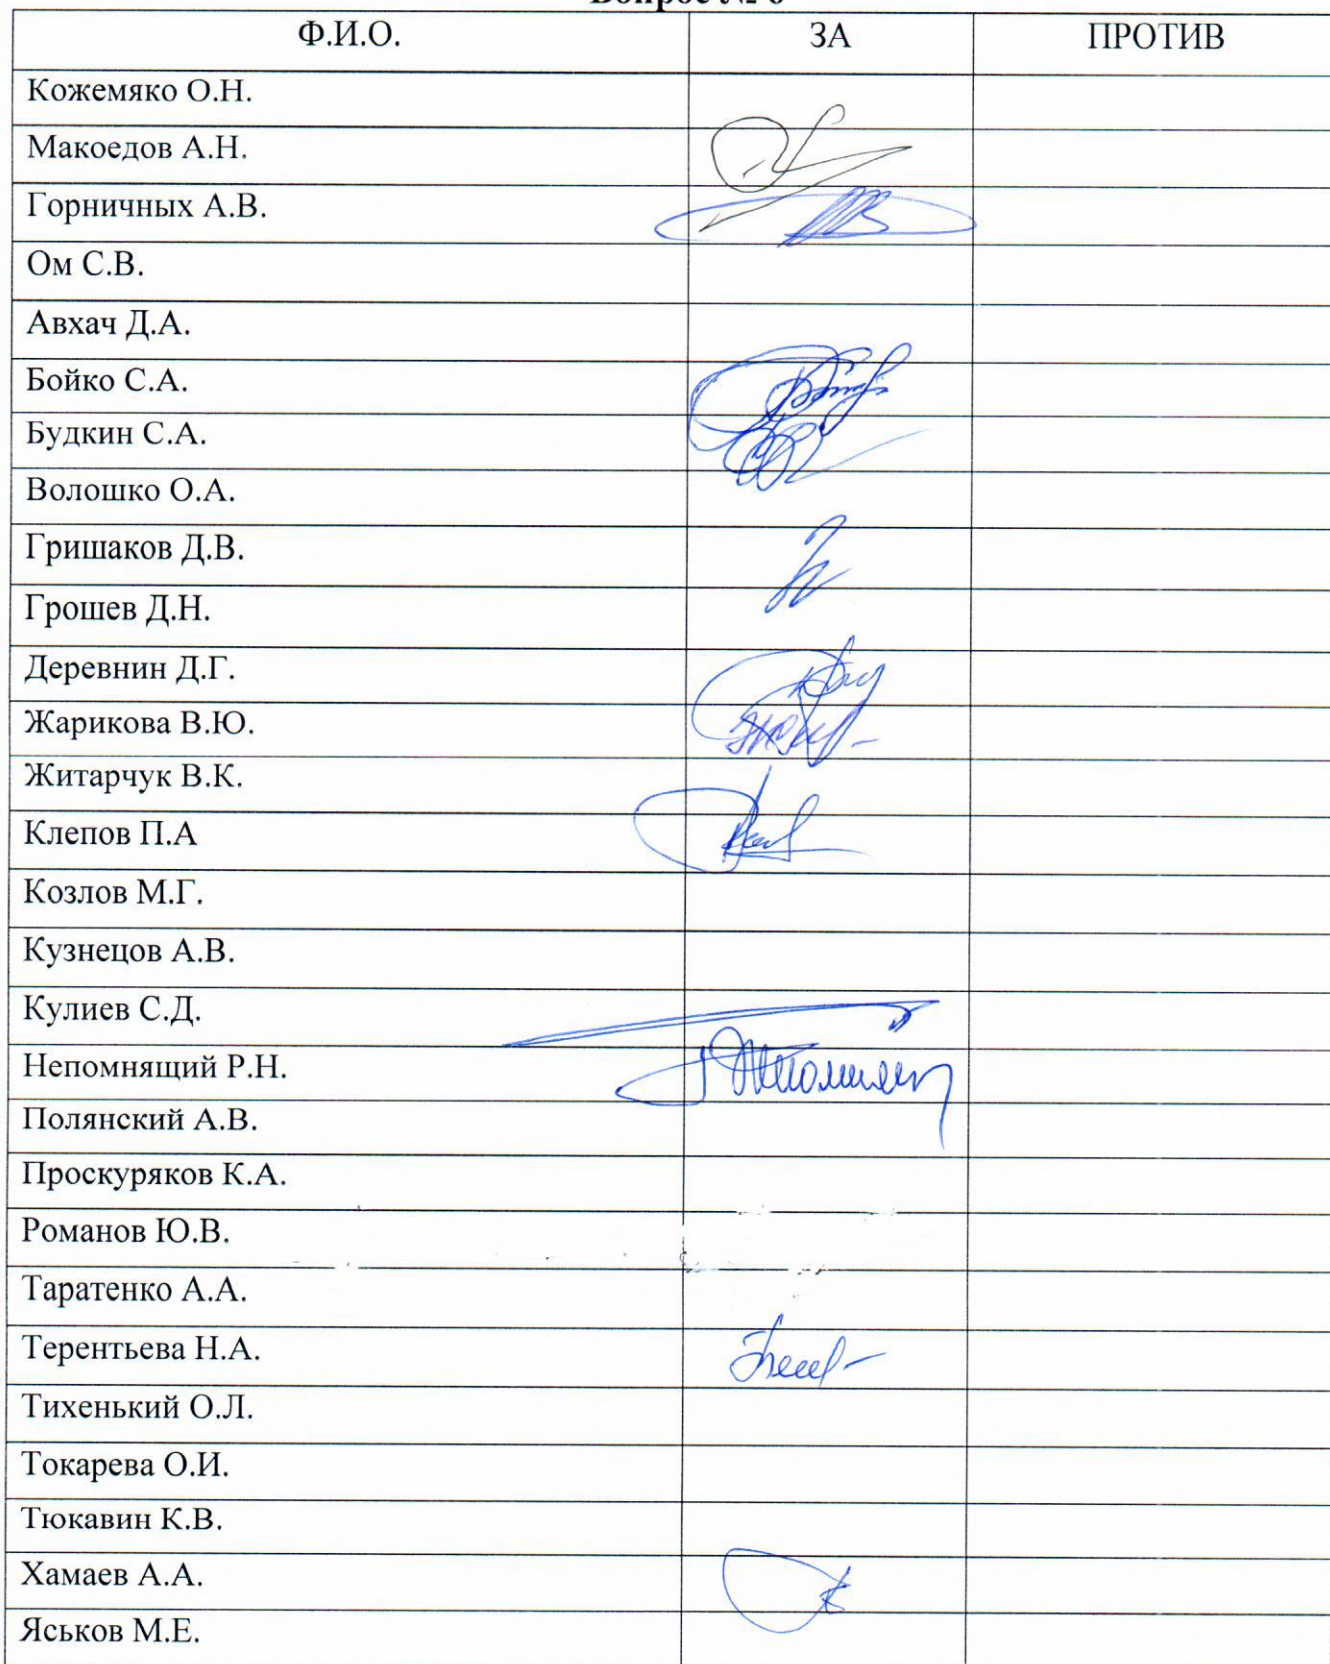 Вопрос № 6
Ф.И.О. ЗА ПРОТИВ
Кожемяко О.Н.
Макоедов А.Н.
Горничных А.В.
Ом С.В.
Авхач Д.А.
Бойко С.А.
Будкин С.А.
Волошко О.А.
Гришаков Д.В.
Грошев Д.Н.
Деревнин Д.Г.
Жарикова В.Ю.
Житарчук В.К.
Клепов П.А
Козлов М.Г.
Кузнецов А.В.
Кулиев С.Д.
Непомнящий Р.Н.
Полянский А.В.
Проскуряков К.А.
Романов Ю.В.
Таратенко А.А.
Терентьева Н.А.
Тихенький О.Л.
Токарева О.И.
Тюкавин К.В.
Хамаев А.А.
Яськов М.Е.